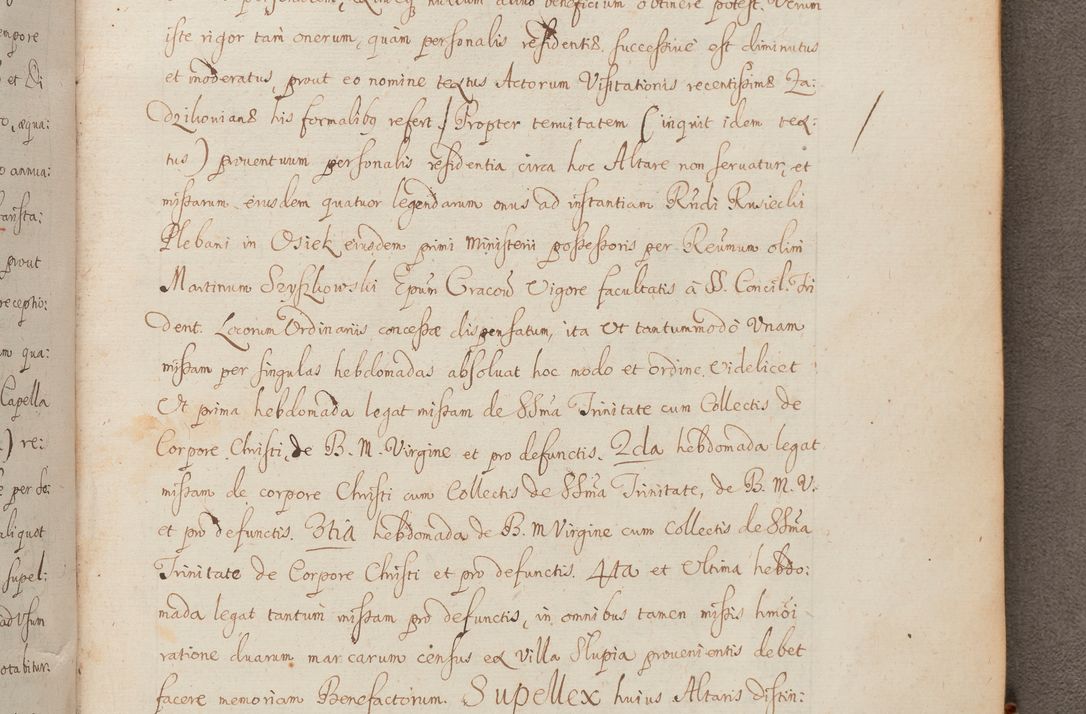 personalem, nullum aliud beneficium obtinere potest. Verum
iste rigor tam onerum, quàm personalis residentiæ successivè est diminutus
et moderatus, prout eo nomine textus Actorum Visitationis recentissimæ Za:
dzikovianæ his formalibq refert. / Propter tenuitatem ( inquit idem tex:
tus ) proventuum personalis residentia circa hoc Altare non servatur, et
missarum eiusdem quatuor legendarum onus ad instantiam Rndi Rusiecki
Plebani in Osiek eiusdem primi Ministerii possessoris per Reumum olim
Martinum Szyszkowski Epum Cracou Vigore facultatis à SS. Concil. Tri
dent. Locorum Ordinariis concessæ dispensatum, ita Ut tantummodò Unam
missam per singulas hebdomadas absoluat hoc modo et ordine. Videlicet
Ut prima hebdomada legat missam de SSma Trinitate cum Collectis de
Corpore Christi, de B. M. Virgine et pro defunctis. 2da hebdomada legat
missam de corpore Christi cum Collectis de SSma Trinitate, de B. M. V.
et pro defunctis. 3tiâ hebdomada de B. M Virgine cum Collectis de SSma
Trinitate de Corpore Christi et pro defunctis. 4ta et Ultima hebdo:
mada legat tantum missam pro defunctis, in omnibus tamen missis hmoi
ratione duarum marcarum census ex Villa Slupia provenientis debet
facere memoriam Benefactorum. Supellex huius Altaris distin:
empore
et Di
æqua:
annua:
arista:
prout
receptio:
qua:
Capella
re:
per
aliquot
supel:
ad Usum